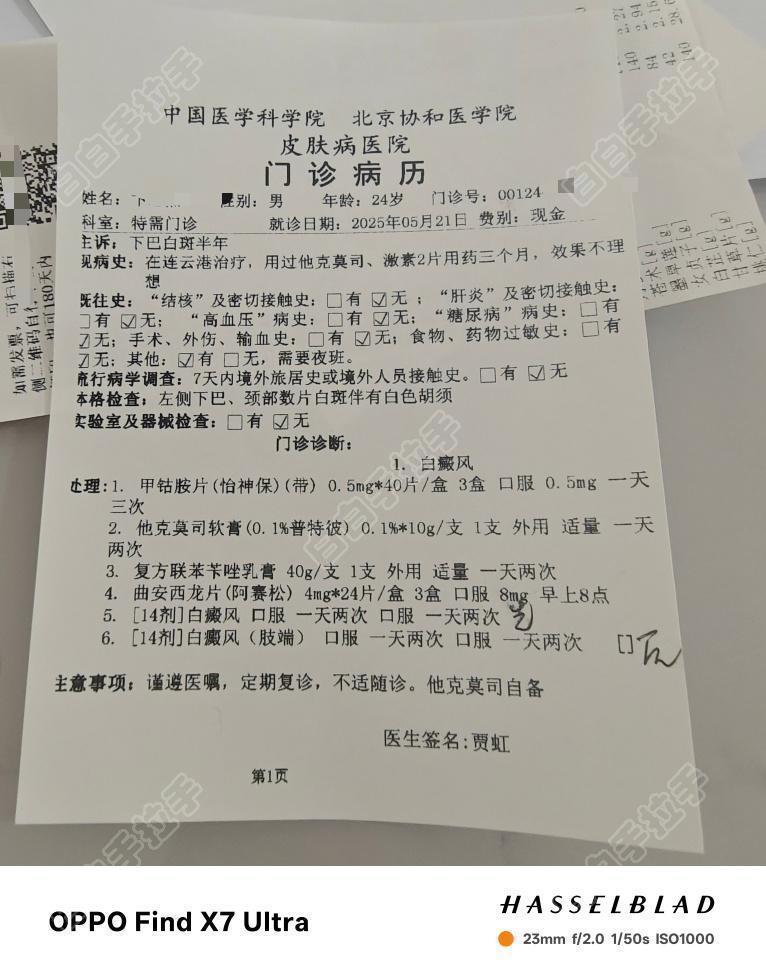 中国医学科学院 北京协和医学院
皮肤病医院
门诊病历
姓名: 性别: 男 年龄: 24岁 门诊号: 00124
科室: 特需门诊 就诊日期: 2025年05月21日 费别: 现金
主诉: 下巴白斑半年
现病史: 在连云港治疗, 用过他克莫司、激素2片用药三个月, 效果不理
想
既往史: “结核”及密切接触史: □有 ☑无 ; “肝炎”及密切接触史:
□有 ☑无; “高血压”病史: □有 ☑无; “糖尿病”病史: □有
☑无; 手术、外伤、输血史: □有 ☑无; 食物、药物过敏史: □有
☑无; 其他: ☑有 □无, 需要夜班。
流行病学调查: 7天内境外旅居史或境外人员接触史。□有 ☑无
体格检查: 左侧下巴、颈部数片白斑伴有白色胡须
实验室及器械检查: □有 ☑无
门诊诊断:
1. 白癜风
处理: 1. 甲钴胺片(怡神保)(带) 0.5mg*40片/盒 3盒 口服 0.5mg 一天
三次
2. 他克莫司软膏(0.1%普特彼) 0.1%*10g/支 1支 外用 适量 一天
两次
3. 复方联苯苄唑乳膏 40g/支 1支 外用 适量 一天两次
4. 曲安西龙片(阿赛松) 4mg*24片/盒 3盒 口服 8mg 早上8点
5. [14剂]白癜风 口服 一天两次 口服 一天两次
6. [14剂]白癜风(肢端) 口服 一天两次 口服 一天两次 []
主意事项: 谨遵医嘱, 定期复诊, 不适随诊。他克莫司自备
医生签名: 贾虹
第1页
如需发票, 可扫描右
侧二维码自行
也可180天内
140
84
42
140
2.94
2.15
28.6
白白手拉手
白白手拉手
白白手拉手
白白手拉手
白白手拉手
白白手拉手
OPPO Find X7 Ultra
HASSELBLAD
23mm f/2.0 1/50s ISO1000